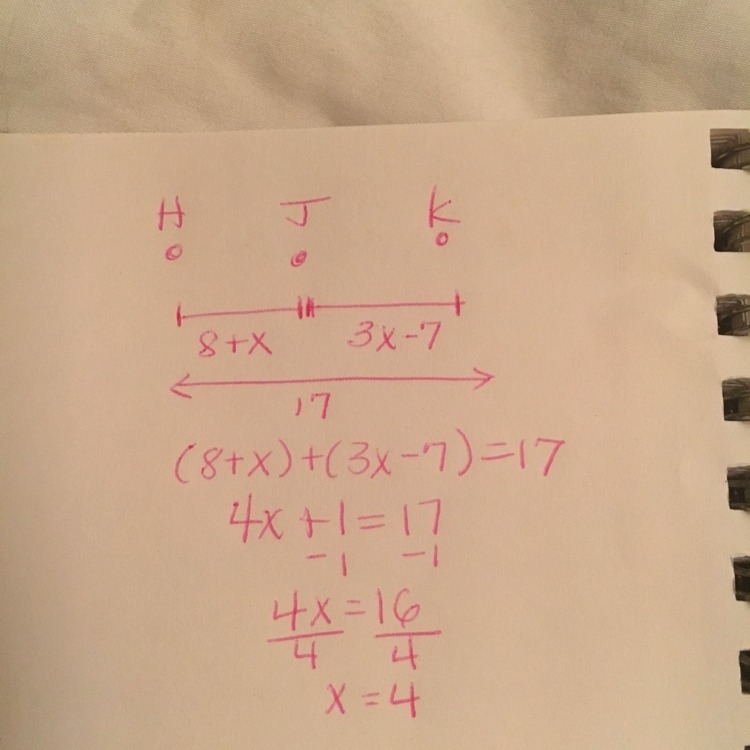 H J K
8+x 3x-7
17
(8+x)+(3x-7)=17
4x+1=17
-1 -1
4x=16
4 4
x=4